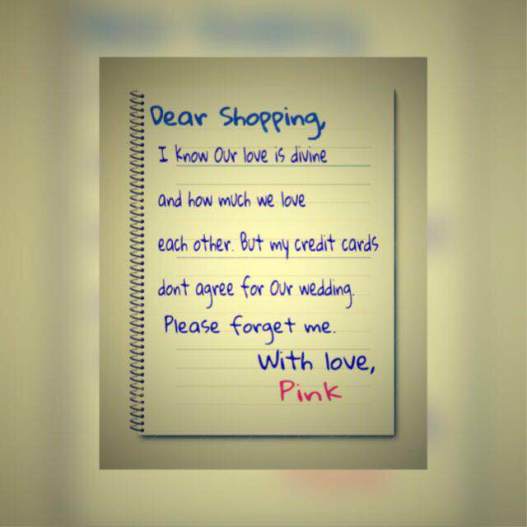 Dear Shopping,
I know Our love is divine
and how much we love
each other. But my credit cards
dont agree for Our wedding.
Please forget me.
With love,
Pink